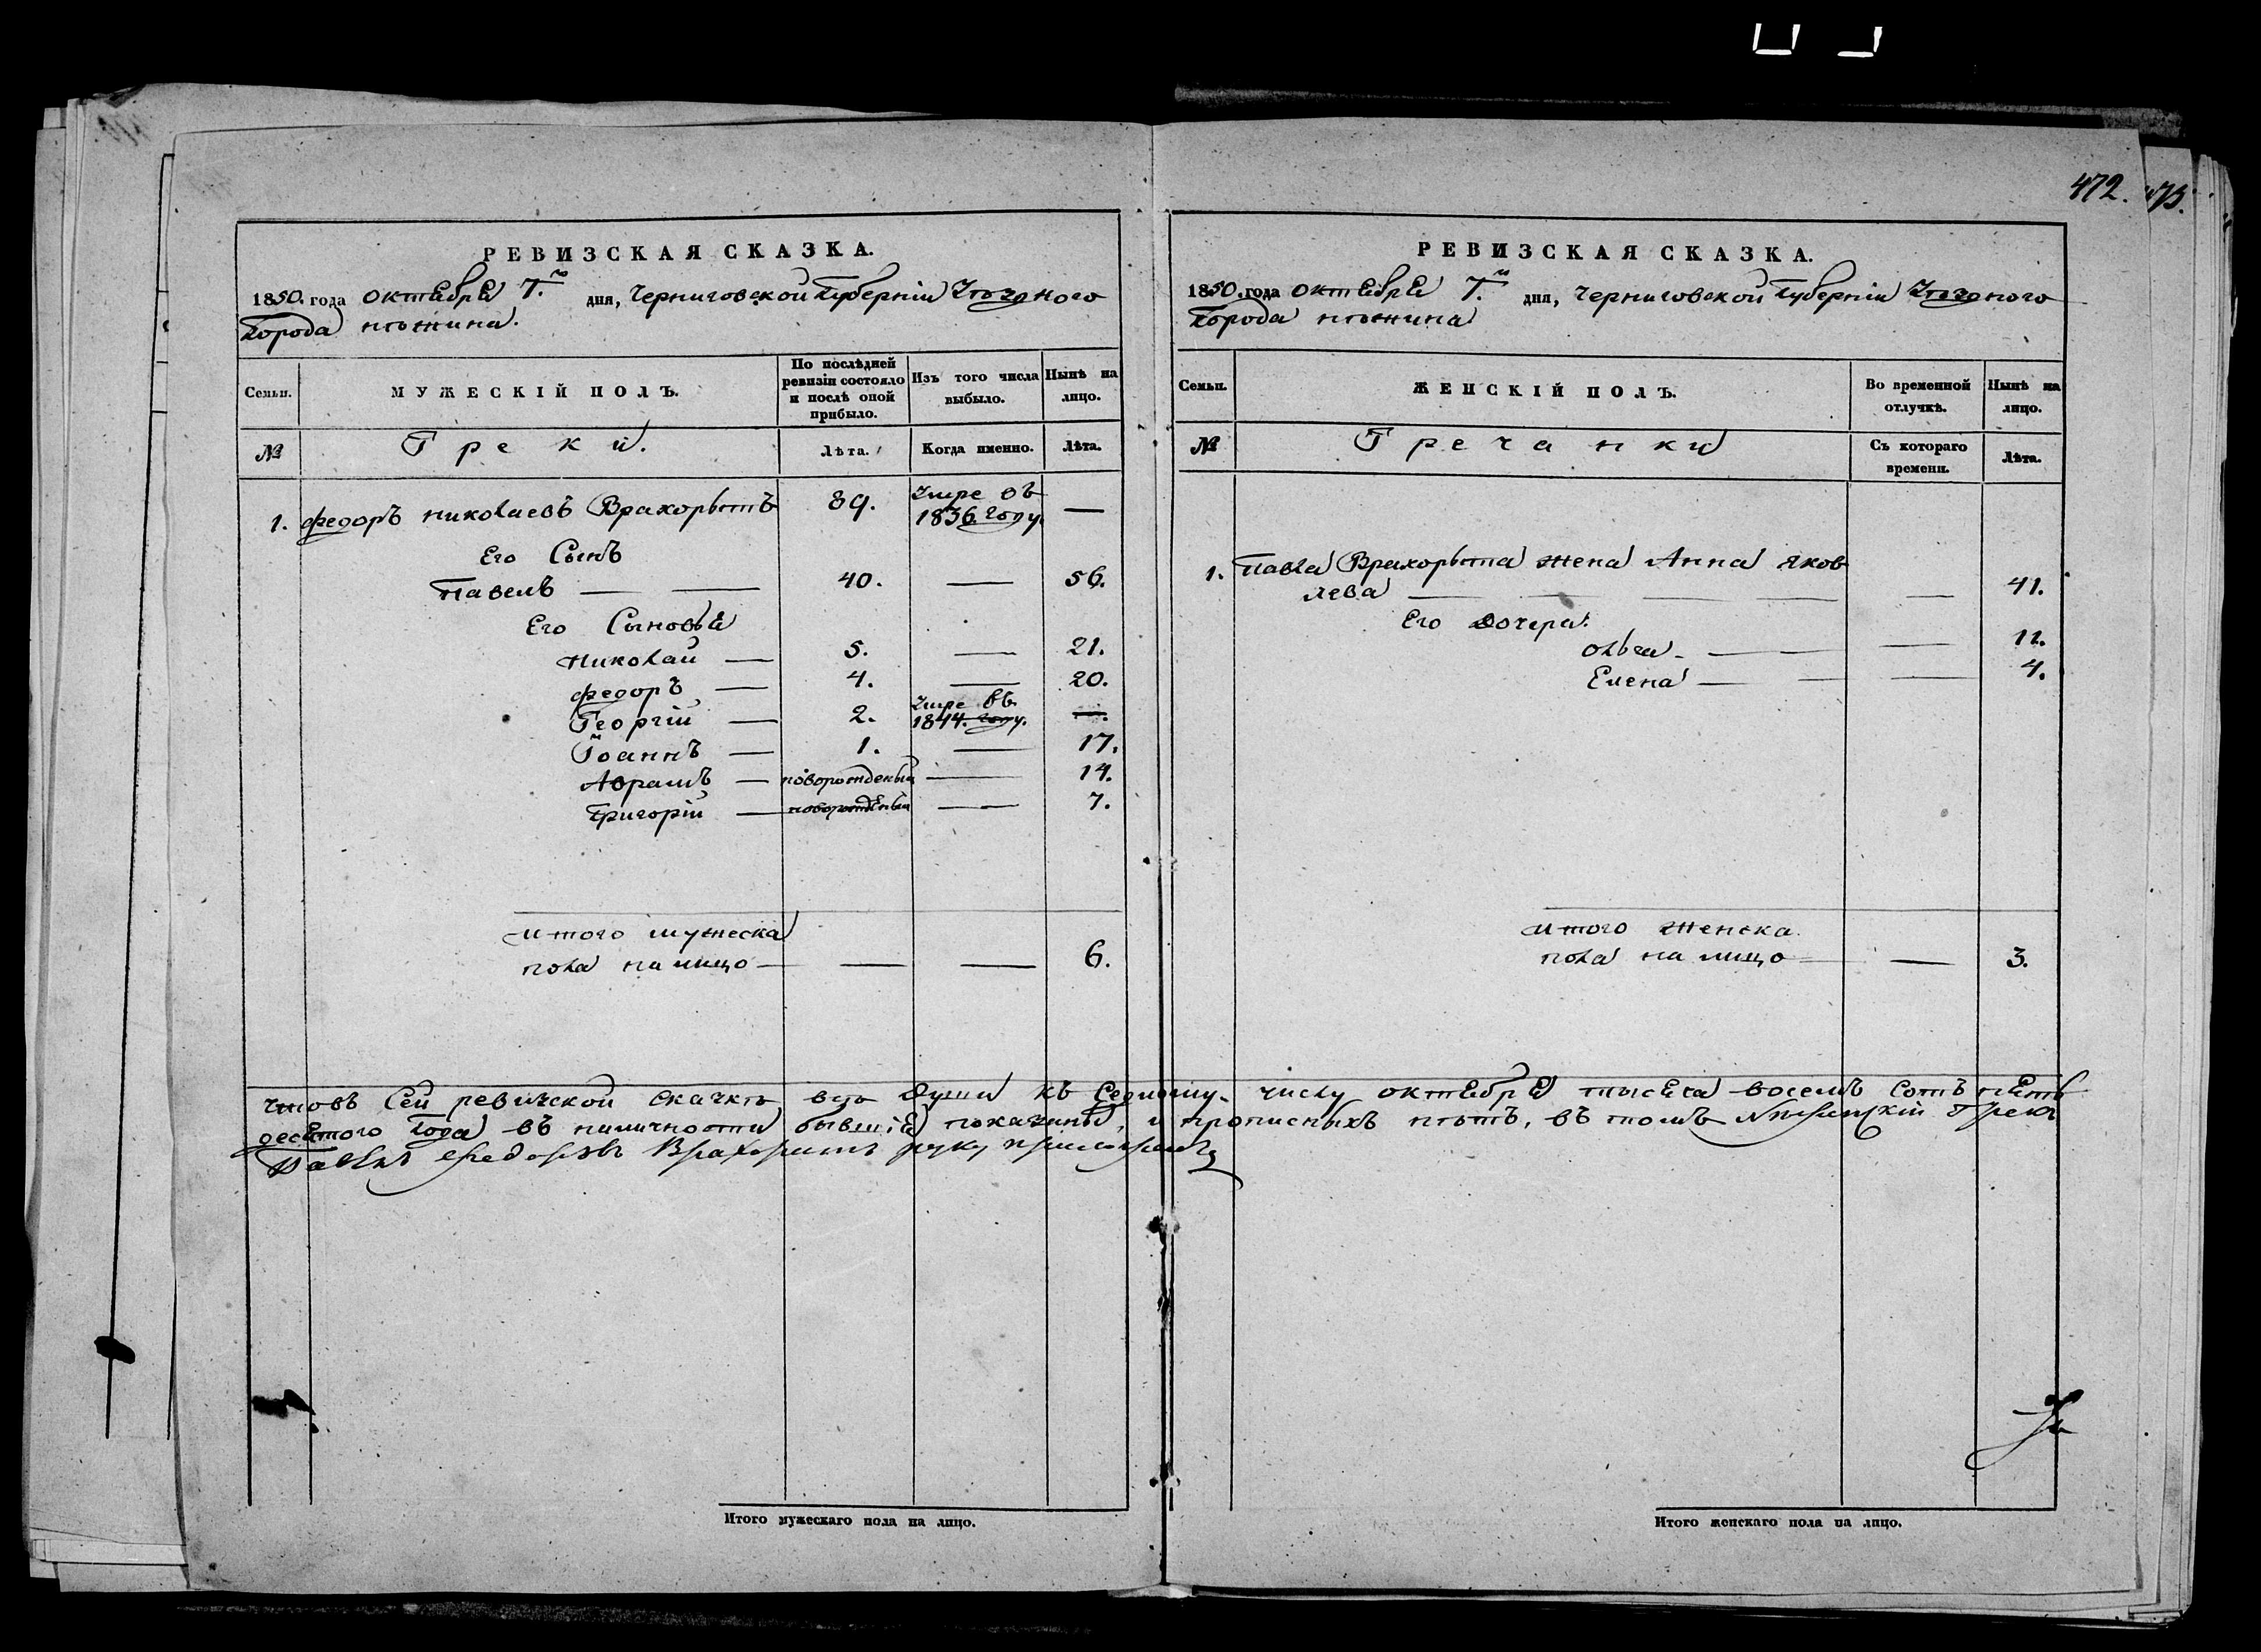 472.
73.
РЕВИЗСКАЯ СКАЗКА.
1850. года октября 7.го дня, Черниговской Губерніи Уезднаго
Города Нѣжина.
Семьи.
МУЖЕСКІЙ ПОЛЪ.
По послѣдней ревизіи состояло и послѣ оной прибыло.
Изъ того числа выбыло.
Нынѣ на лицо.
№
Греки.
Лѣта.
Когда именно.
Лѣта.
1. Федоръ Николаевъ Врахорытъ 89. Умре въ 1836. году. —
Его Сынъ
Павелъ — — 40. — 56.
Его Сыновья
Николай — 5. — 21.
Федоръ — 4. — 20.
Георгій — 2. Умре въ 1844. году. —.
Іоаннъ — 1. — 17.
Абрамъ — новорожденый — 14.
Григорій — новорожденый — 7.
Итого мужеска
пола на лицо — — — 6.
РЕВИЗСКАЯ СКАЗКА.
1850. года октября 7.го дня, Черниговской Губерніи Уезднаго
Города Нѣжина
Семьи.
ЖЕНСКІЙ ПОЛЪ.
Во временной отлучкѣ.
Нынѣ на лицо.
№
Гречанки
Съ котораго времени.
Лѣта.
1. Павла Врахорыта жена Анна Яков
лева — — — — — 41.
Его дочери:
Ольга — — — 12.
Елена — — — 4.
Итого женска
пола на лицо — — 3.
Что въ Сей ревиской скаскѣ всѣ души къ Седмому числу октября тысяча восемъ сотъ пять
десятого Года въ наличности бывшія показаны, и прописныхъ нѣтъ, въ томъ Нѣжинскій Грекъ
Павелъ Федоровъ Врахоритъ руку приложилъ
Итого мужескаго пола на лицо.
Итого женскаго пола на лицо.